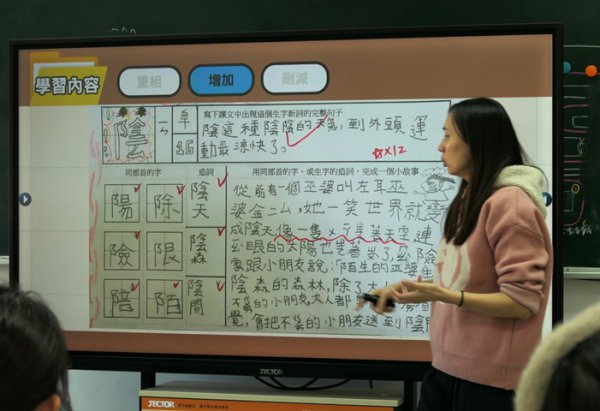 學習內容
重組
增加
刪減
陰
ㄧㄣ
阜部
寫下課文中出現這個生字新詞的完整句子
陰這種陰陰的天氣，到外頭運
動最涼快了。
12
同部首的字
造詞
用同部首的字、或生字的造詞，完成一個小故事
陽
除
陰天
險
限
陰森
陪
陌
陰間
從前有一個巫婆叫左耳巫
婆金ㄙㄙ，她一笑世界就變
成陰天像一隻
天空，連
眼的太陽也
家跟小朋友說：「陌生的巫婆住
陰森的森林，除了大
不乖的小朋友，大人都
覺，會把不乖的小朋友送到陰間
JECTOR
JECTOR